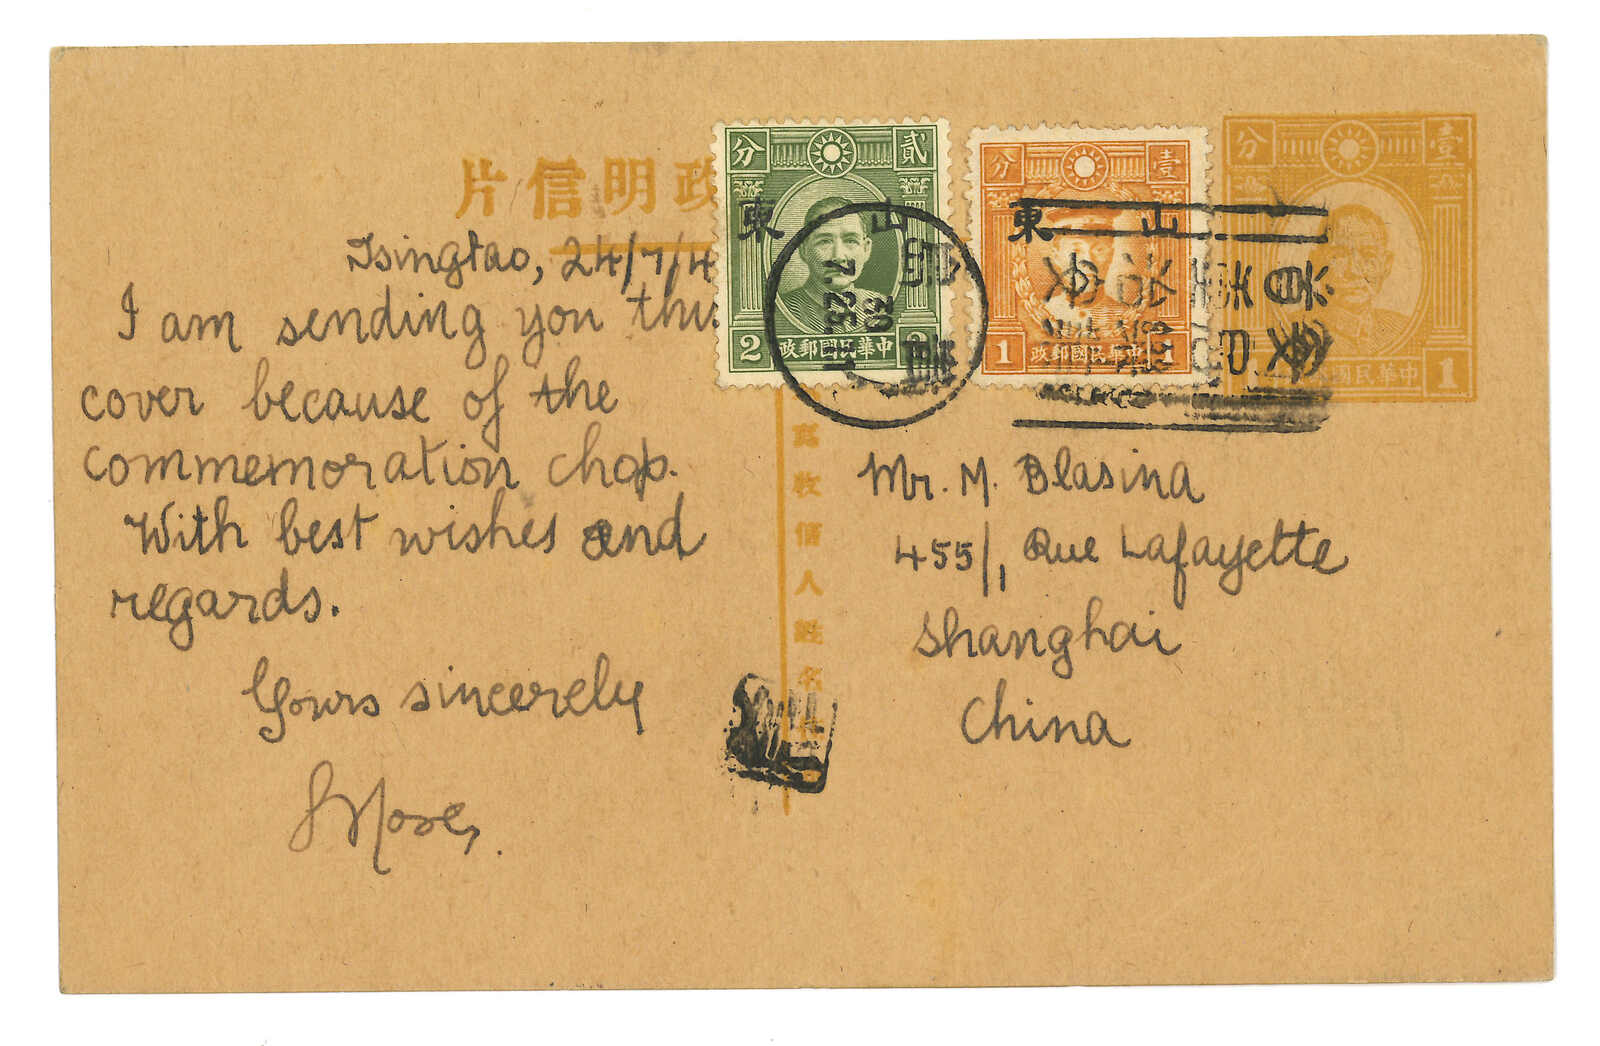 政明信片
Tsingtao, 24/7/4
I am sending you this
cover because of the
commemoration chop.
With best wishes and
regards.
Yours sincerely
分 貳
山東
2 中華民國郵政
分 壹
山東
1 中華民國郵政 1
分 壹
中華民國 1
寫收信人姓名
Mr. M. Blasina
455/1, Rue Lafayette
Shanghai
China